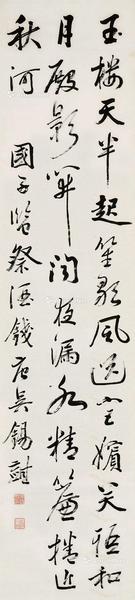 玉楼天半起笙歌風送宮嬪笑語和
月殿影開聞夜漏水精簾捲近
秋河
國子監祭酒錢唐吳錫麒